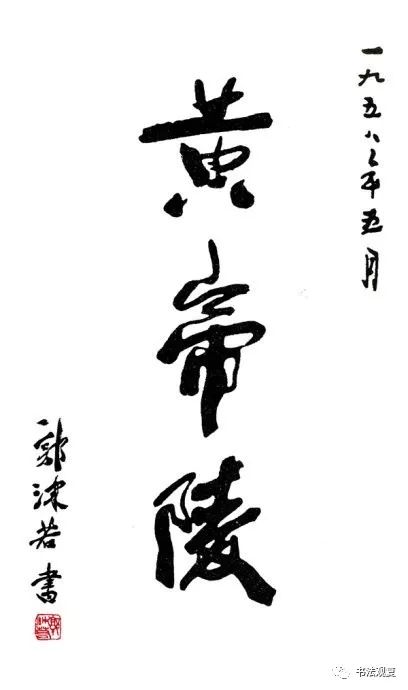 一九五八年五月
黄帝陵
郭沫若書
书法